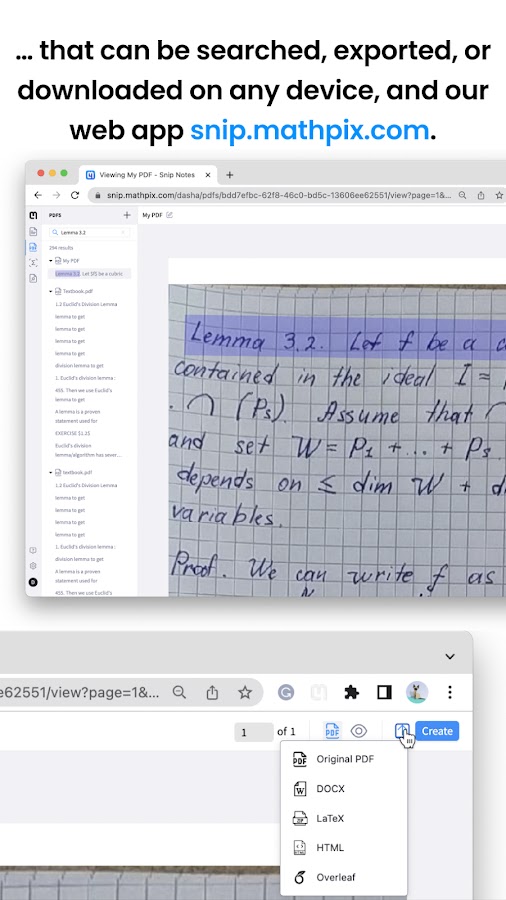 ... that can be searched, exported, or
downloaded on any device, and our
web app snip.mathpix.com.
Viewing My PDF - Snip Notes
snip.mathpix.com/dasha/pdfs/bdd7efbc-62f8-46c0-bd5c-13606ee62551/view?page=1&...
PDFS
My PDF
Lemma 3.2
294 results
My PDF
Lemma 3.2. Let SfS be a cubric
Textbook.pdf
1.2 Euclid's Division Lemma
lemma to get
lemma to get
lemma to get
lemma to get
division lemma to get
1. Euclid's division lemma :
455. Then we use Euclid's
lemma to get
A lemma is a proven
statement used for
EXERCISE $1.2$
Euclid's division
lemma/algorithm has sever...
textbook.pdf
1.2 Euclid's Division Lemma
lemma to get
lemma to get
lemma to get
lemma to get
1. Euclid's division lemma :
division lemma to get
A lemma is a proven
statement used for
455. Then we use Euclid's
lemma to get
Lemma 3.2. Let f be a c
contained in the ideal I =
. ∩ (Ps). Assume that
and set W = P1 + ... + Ps.
depends on ≤ dim W + d
variables.
Proof. We can write f as
ee62551/view?page=1&...
1 of 1
PDF
Create
Original PDF
DOCX
LaTeX
HTML
Overleaf